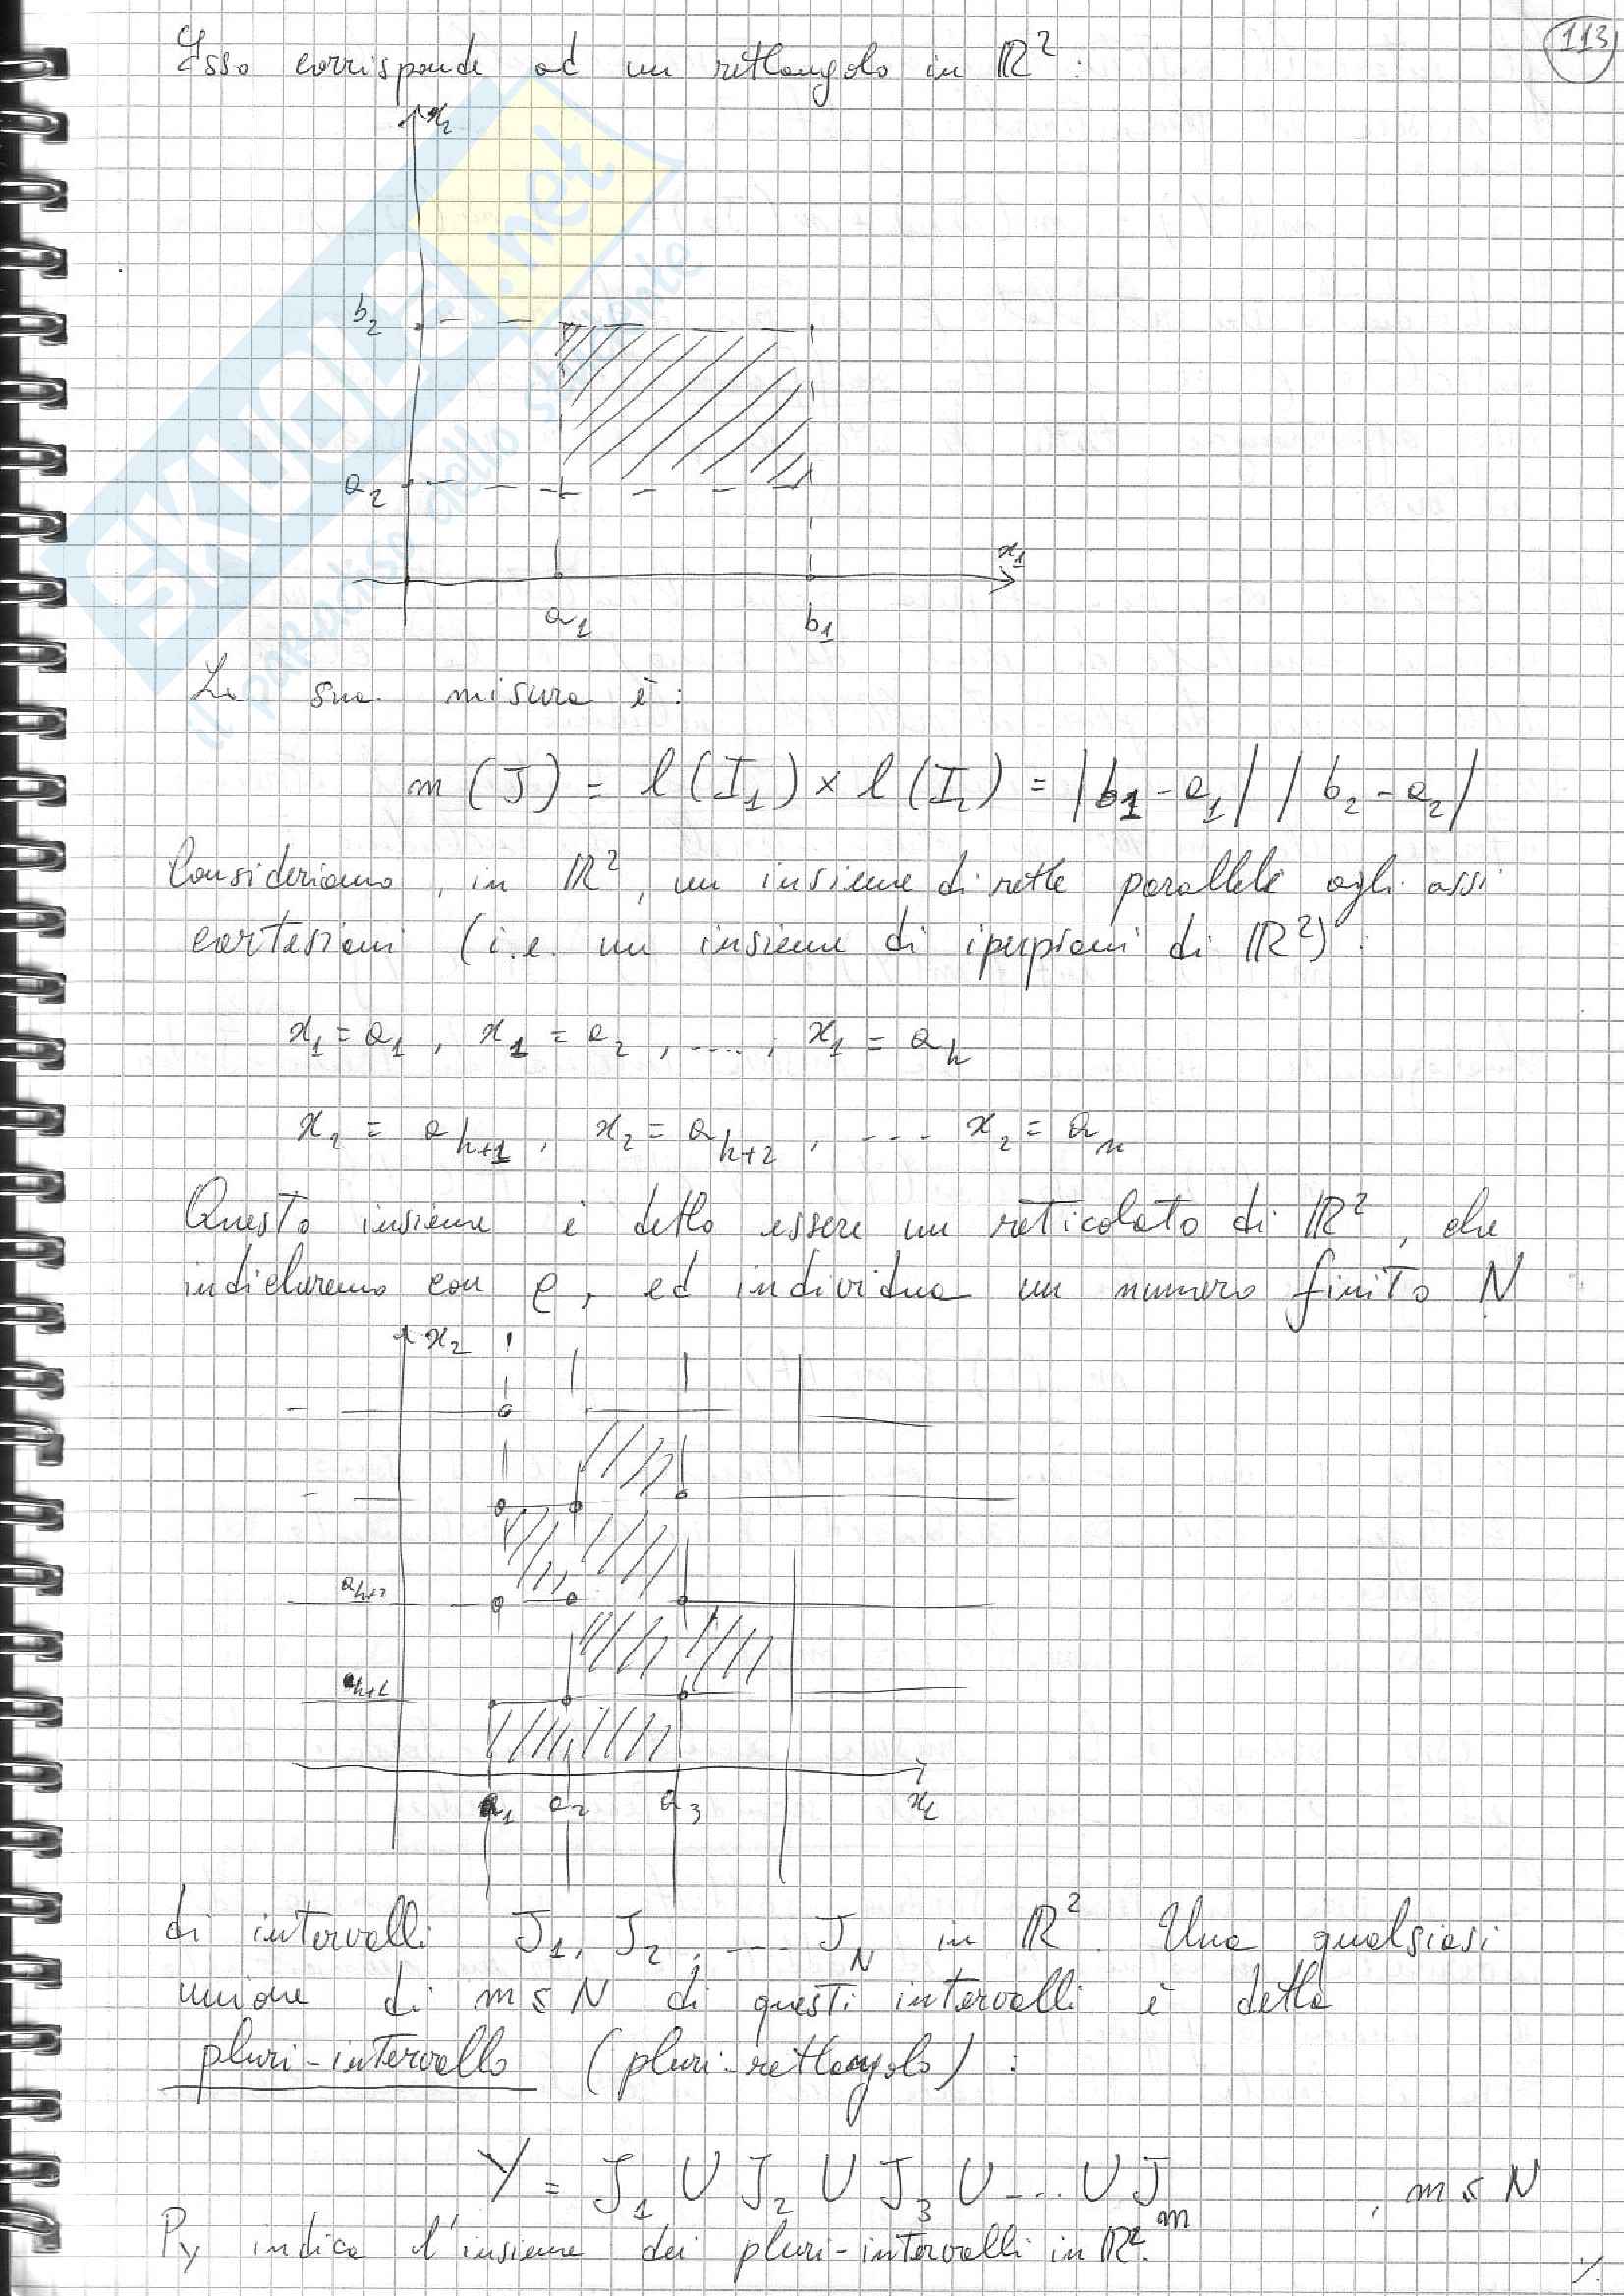 113
Esso corrisponde ad un rettangolo in ℝ²:
x₂
b₂
a₂
x₁
a₁ b₁
La sua misura è:
m (J) = l (I₁) × l (I₂) = |b₁ - a₁| | b₂ - a₂|
Consideriamo, in ℝ², un insieme di rette parallele agli assi
cartesiani (i.e. un insieme di iperpiani di ℝ²):
x₁ = a₁ , x₁ = a₂ , .... , x₁ = aₕ
x₂ = aₕ₊₁ , x₂ = aₕ₊₂ , .... x₂ = aₙ
Questo insieme è detto essere un reticolato di ℝ², che
indicheremo con ρ, ed individua un numero finito N
x₂
aₕ₊₂
aₕ₊₁
a₁ a₂ a₃ x₁
di intervalli J₁, J₂, .... J_N in ℝ². Una qualsiasi
unione di m ≤ N di questi intervalli è detta
pluri-intervallo (pluri-rettangolo) :
Y = J₁ ∪ J₂ ∪ J₃ ∪ .... ∪ Jₘ , m ≤ N
P_Y indica l'insieme dei pluri-intervalli in ℝ².
./.
SKUOLA.net
il paradiso dello studente